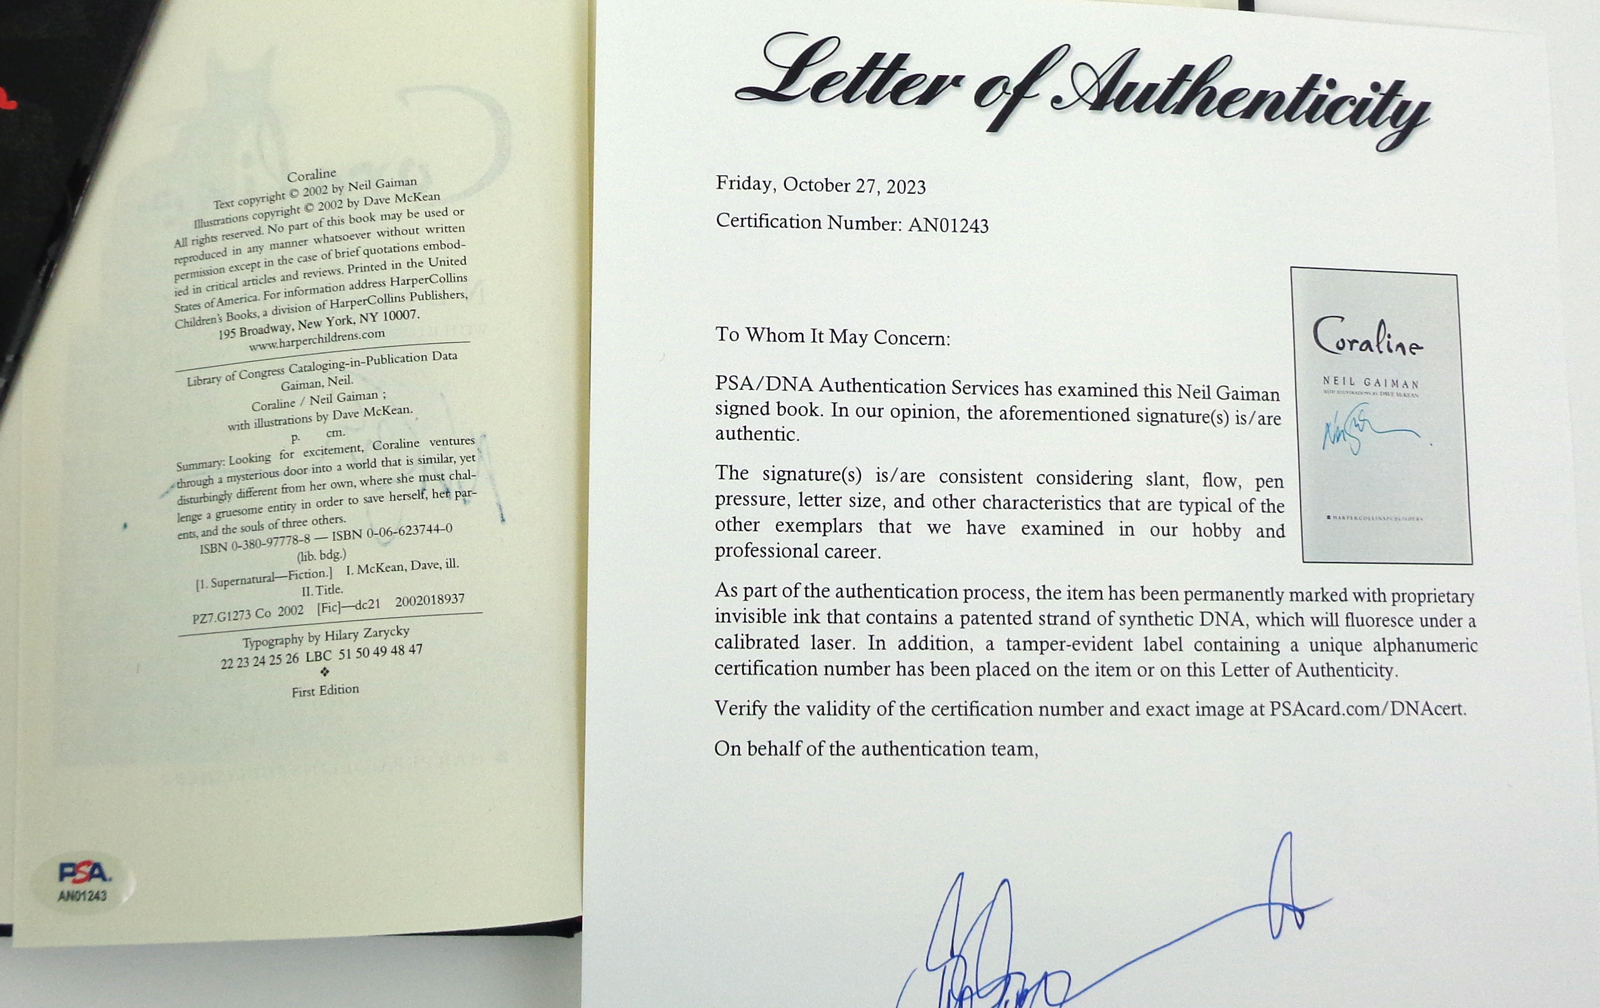 Coraline
Text copyright © 2002 by Neil Gaiman
Illustrations copyright © 2002 by Dave McKean
All rights reserved. No part of this book may be used or
reproduced in any manner whatsoever without written
permission except in the case of brief quotations embod-
ied in critical articles and reviews. Printed in the United
States of America. For information address HarperCollins
Children's Books, a division of HarperCollins Publishers,
195 Broadway, New York, NY 10007.
www.harperchildrens.com
Library of Congress Cataloging-in-Publication Data
Gaiman, Neil.
Coraline / Neil Gaiman ;
with illustrations by Dave McKean.
p. cm.
Summary: Looking for excitement, Coraline ventures
through a mysterious door into a world that is similar, yet
disturbingly different from her own, where she must chal-
lenge a gruesome entity in order to save herself, her par-
ents, and the souls of three others.
ISBN 0-380-97778-8 — ISBN 0-06-623744-0
(lib. bdg.)
[1. Supernatural—Fiction.] I. McKean, Dave, ill.
II. Title.
PZ7.G1273 Co 2002 [Fic]—dc21 2002018937
Typography by Hilary Zarycky
22 23 24 25 26 LBC 51 50 49 48 47
First Edition
PSA.
AN01243
Letter of Authenticity
Friday, October 27, 2023
Certification Number: AN01243
To Whom It May Concern:
PSA/DNA Authentication Services has examined this Neil Gaiman
signed book. In our opinion, the aforementioned signature(s) is/are
authentic.
The signature(s) is/are consistent considering slant, flow, pen
pressure, letter size, and other characteristics that are typical of the
other exemplars that we have examined in our hobby and
professional career.
Coraline
NEIL GAIMAN
WITH ILLUSTRATIONS BY DAVE McKEAN
HARPERCOLLINSPUBLISHERS
As part of the authentication process, the item has been permanently marked with proprietary
invisible ink that contains a patented strand of synthetic DNA, which will fluoresce under a
calibrated laser. In addition, a tamper-evident label containing a unique alphanumeric
certification number has been placed on the item or on this Letter of Authenticity.
Verify the validity of the certification number and exact image at PSAcard.com/DNAcert.
On behalf of the authentication team,